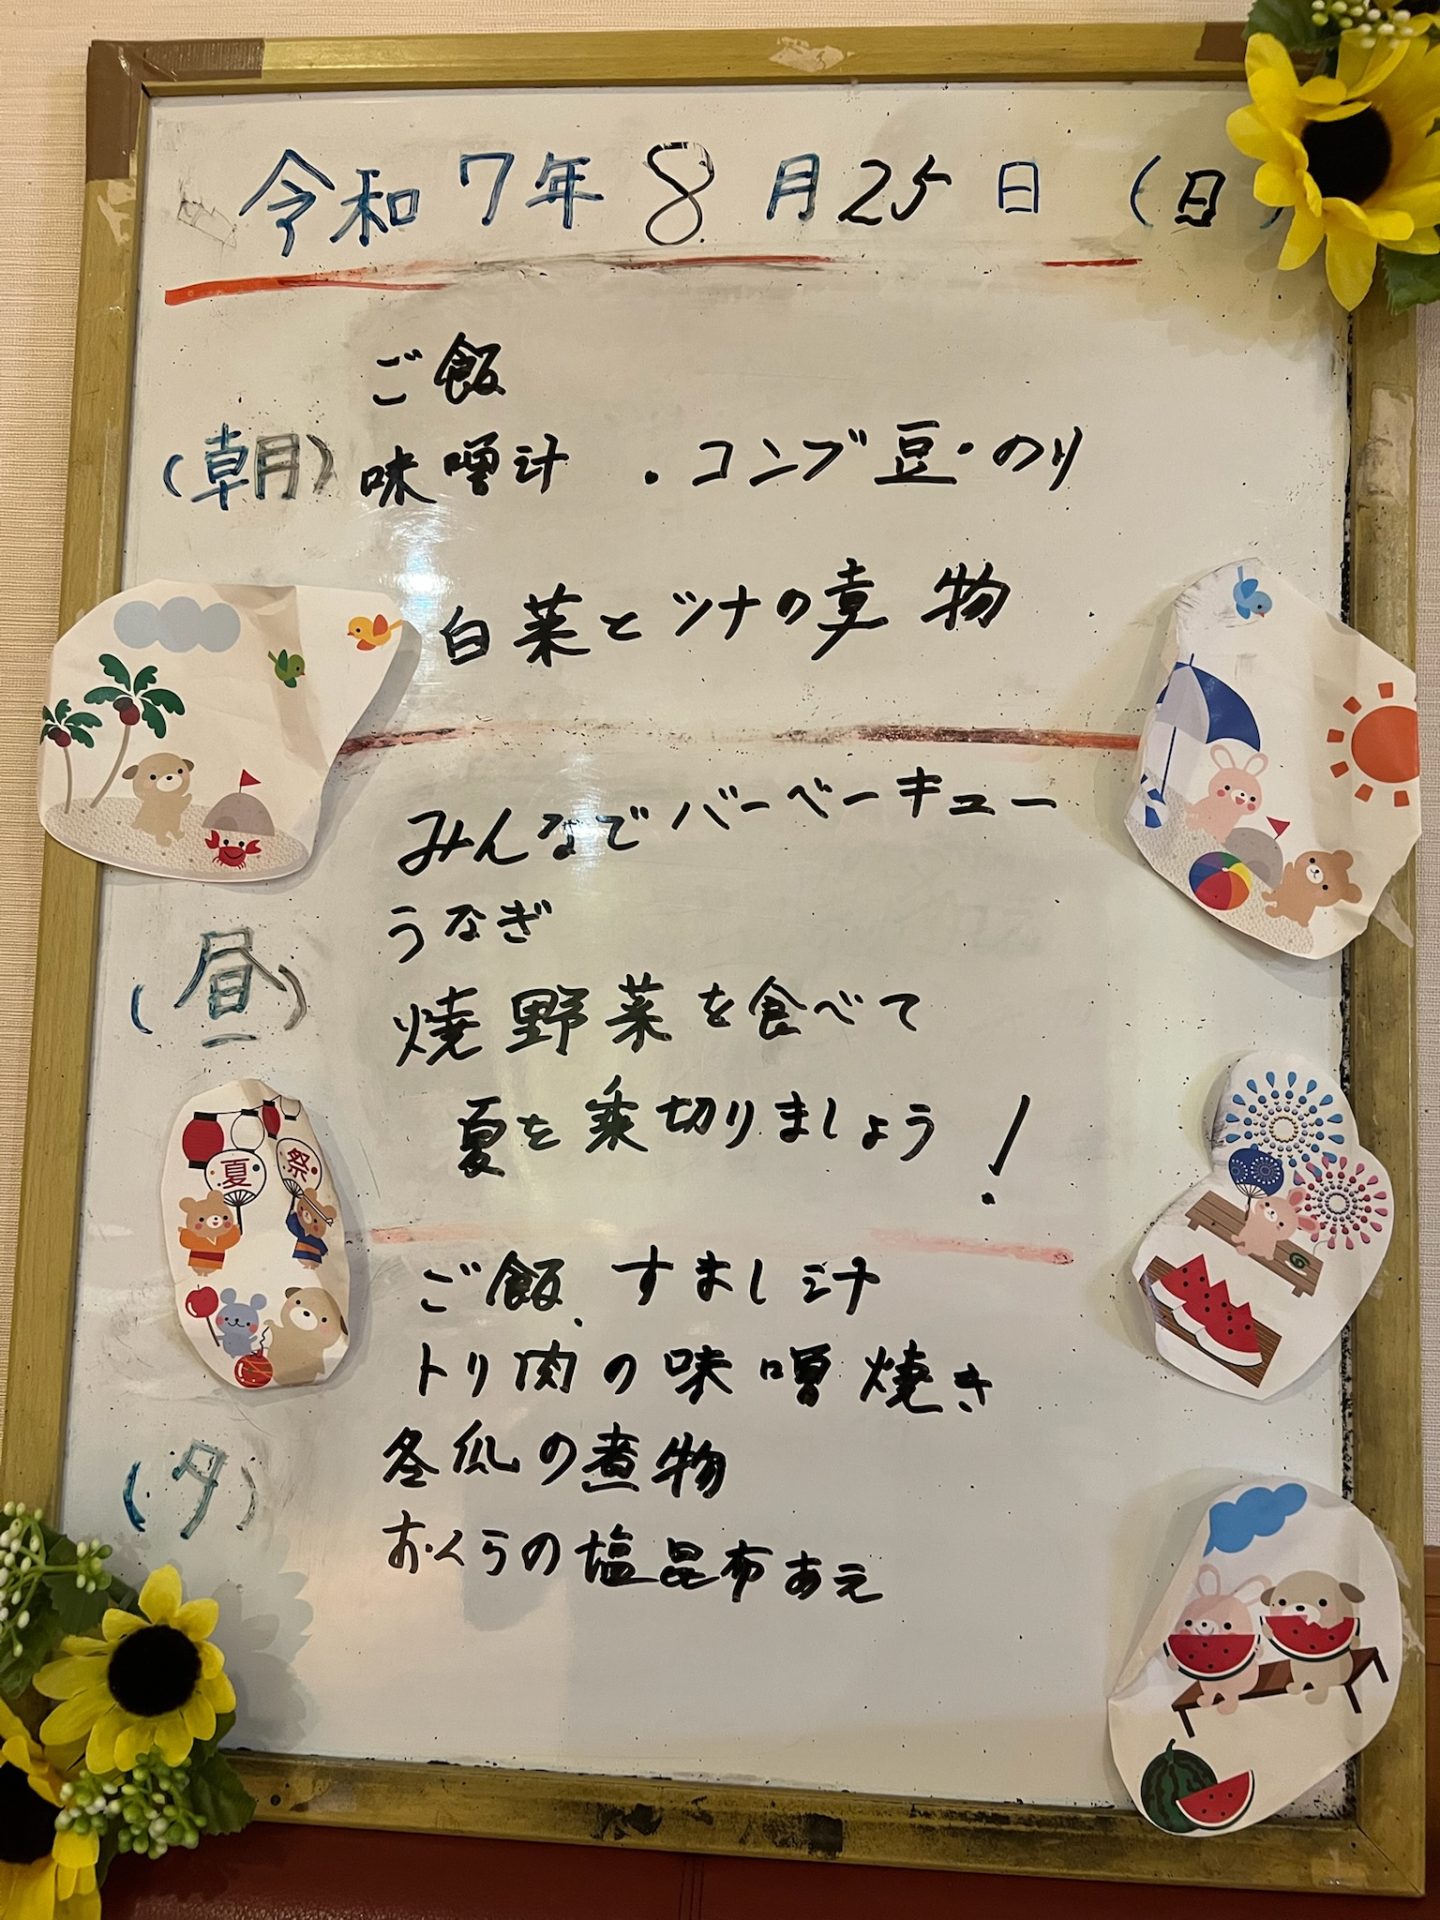 令和7年8月25日(日)
(朝)
ご飯
味噌汁 ・コンブ豆・のり
白菜とツナの煮物
(昼)
みんなでバーベーキュー
うなぎ
焼野菜を食べて
夏を乗切りましょう!
夏祭
(夕)
ご飯、すまし汁
トリ肉の味噌焼き
冬瓜の煮物
おくらの塩昆布あえ